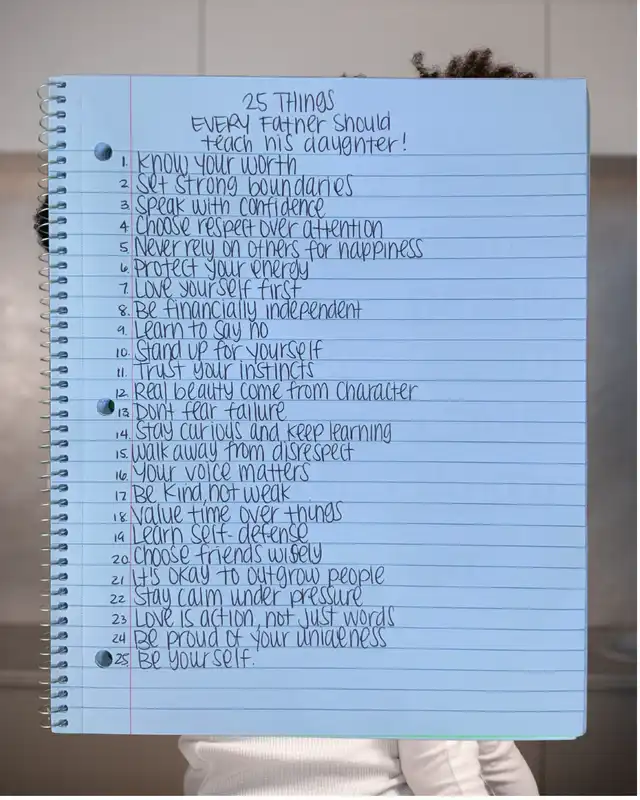 25 Things
EVERY Father should
teach his daughter!
1. Know your worth
2. Set strong boundaries
3. Speak with confidence
4. Choose respect over attention
5. Never rely on others for happiness
6. Protect your energy
7. Love yourself first
8. Be financially independent
9. Learn to say no
10. Stand up for yourself
11. Trust your instincts
12. Real beauty come from character
13. Dont fear failure
14. Stay curious and keep learning
15. Walk away from disrespect
16. Your voice matters
17. Be kind, not weak
18. Value time over things
19. Learn self-defense
20. Choose friends wisely
21. It's okay to outgrow people
22. Stay calm under pressure
23. Love is action, not just words
24. Be proud of your uniqeness
25. Be yourself.